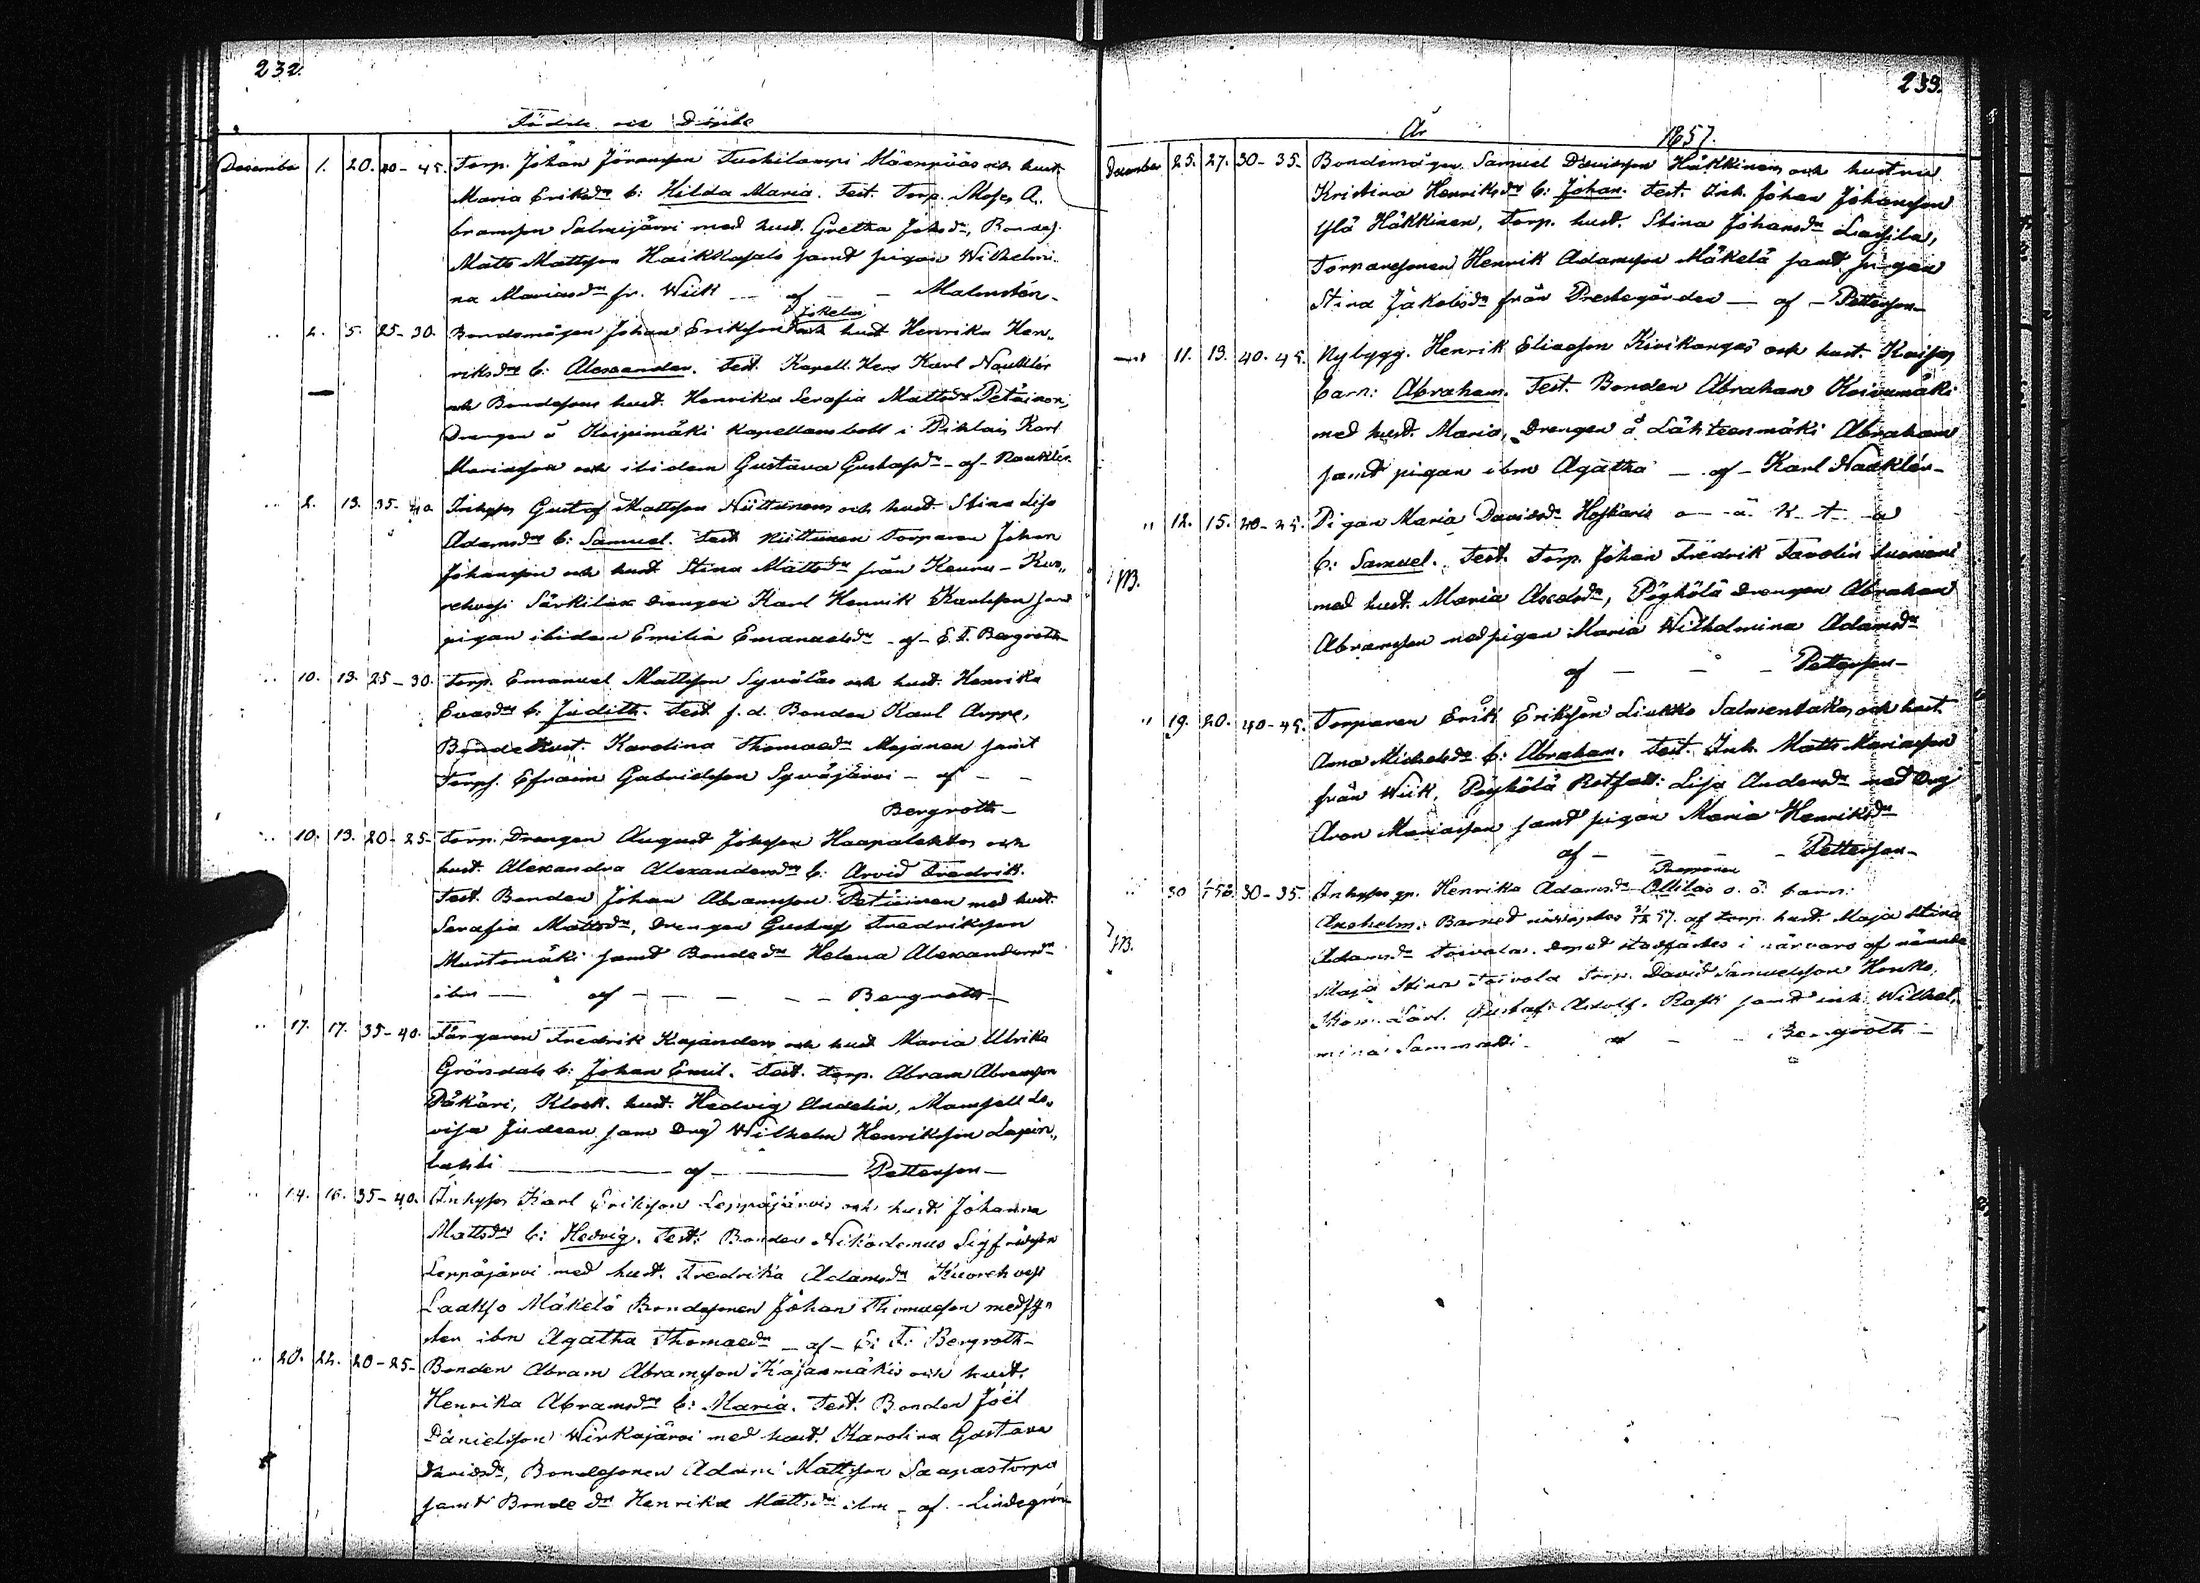 232.
Födde och Döpte
December 1. 20. 40-45. Torp. Johan Göransson Tuohilampi Mäenpääs och hust.
Maria Eriksdr b: Hilda Maria. Test. Torp. Moses A.
bramsson Salmijärvi med hust. Gretha Johsdr, Bondes.
Matts Mattsson Haikkapalo samt pigan Wilhelmi-
na Mariasdr fr. Wiik — af — Malmstén-
Jokela
„ 2. 5. 25-30. Bondemågen Johan Eriksson och hust Henrika Hen„
riksdrs b: Alexander. Test. Kapell. Herr Karl Naukler
och Bondesons hust. Henrika Serafia Mattsdr Petäinen,
Drengen å Knipimäki Kapellansboll i Pihlais Karl
Mariasson och ibidem Gustava Gustafsdr - af - Naukler.
„ 2. 13. 35-40 Inhyses Gustaf Mattsson Niittunens och hust. Stina Lisa
Adamsdrs b: Samuel. Test Niittunen Torparen Johan
Johansson och hust Stina Mattsdr från Keuru - Kuo„
rehvesi Särkilax Drengen Karl Henrik Karlsson samt
pigan ibidem Emilia Emanuelsdr - af - E. F. Bergroth
„ 10. 13. 25-30. Torp. Emanuel Mattsson Syväläs och hust. Henrika
Evasdrs b: Judith. Test f.d. Bonden Karl Arppe,
Bonde hust. Karolina Thomasdr Mojanen samt
Torps. Efraim Gabrielsson Syväjärvi - af - -
Bergroth-
„ 10. 13. 20-25- Torp. Drengen August Johsson Haapalehtos och
hust. Alexandra Alexandersdrs b: Arvid Fredrik.
Test. Bonden Johan Abramsson Petäinen med hust.
Serafia Mattsdr, Drengen Gustaf Fredriksson
Murtomäki samt Bonde dr Helena Alexandersdr
ibm — af — — — — Bergroth-
„ 17. 17. 35-40. Färgaren Fredrik Kajanders och hust Maria Ulrika
Gröndals b: Johan Emil. Test. Torp. Abram Abramsson
Päkäri, Klock. hust. Hedvig Andelin, Mamsell Lo„
visa Judeen sam Dng Wilhelm Henriksson Lapin„
lahti — af — Petterson-
„ 14. 16. 35-40. Inhyses Karl Eriksson Leppäjärvis och hust. Johanna
Mattsdrs b: Hedvig. Test: Bonden Nikodemus Sigfridsson
Leppäjärvi med hust. Fredrika Adamsdr Kuorehvesi
Laakso Mäkelä Bondesonen Johan Thomasson med sy-
ster ibm Agatha Thomasdr - af - E: F: Bergroth-
„ 20. 22. 20-25- Bonden Abram Abramsson Kajasmäkis och hust.
Henrika Abramsdrs b: Maria. Test. Bonden Joël
Danielsson Wirkajärvi med hust. Karolina Gustava
Davidsdr, Bondesonen Adam Mattsson Saapastorpa
samt Bonde dr Henrika Mattsdr ibm - af - Lindegrén
233.
År 1857.
December 25. 27. 30-35. Bondemågen Samuel Davidsson Häkkinens och hustru
Kristina Henriksdrs b: Johan. Test. Inh. Johan Johansson
Ylä Häkkinen, Torp. hust. Stina Johansdr Lassila,
Torparesonen Henrik Adamsson Mäkelä samt pigan
Stina Jakobsdr från Prestegården — af - Petterson-
11. 13. 40-45. Nybygg. Henrik Eliasson Kivikangas och hust. Kaisas
barn: Abraham. Test. Bonden Abraham Koivumäki
med hust. Maria, Drengen å Lähteenmäki Abraham
samt pigan ibm Agatha - af - Karl Nauklér-
„ 12. 15. 20-25. Pigan Maria Davidsdr Hoskaris o - ä. k - t - a
b: Samuel. Test. Torp. Johan Fredrik Tavolin
NB. med hust. Maria Axelsdr, Pöyhölä Drengen Abraham
Abramsson med pigan Maria Wilhelmina Adamsdr
af — — — Petterson-
„ 19. 20. 40-45. Torparen Erik Eriksson Liukko Salmentakas och hust.
Anna Michelsdr b: Abraham. Test. Inh. Matts Mariasson
från Wiik, Pöyhölä Rotfatt: Lisa Andersdr med Dng
Aron Mariasson samt pigan Maria Henriksdr
af — — — — Petterson-
„ 30 30-35. Inhyses gp. Henrika Adamsdr Ollilas o. ä. barn:
NB. Anshelm. Barnet nöddöptes 57. af torp. hust. Maja Stina
Adamsdr Toivola. Dopet stadfästes i närvaro af nämnde
Maja Stina Toivola Torp. David Samuelsson Honko,
Gustaf Adolf Raski samt inh. Wilhel„
mina Sammatti - af - - Bergroth -